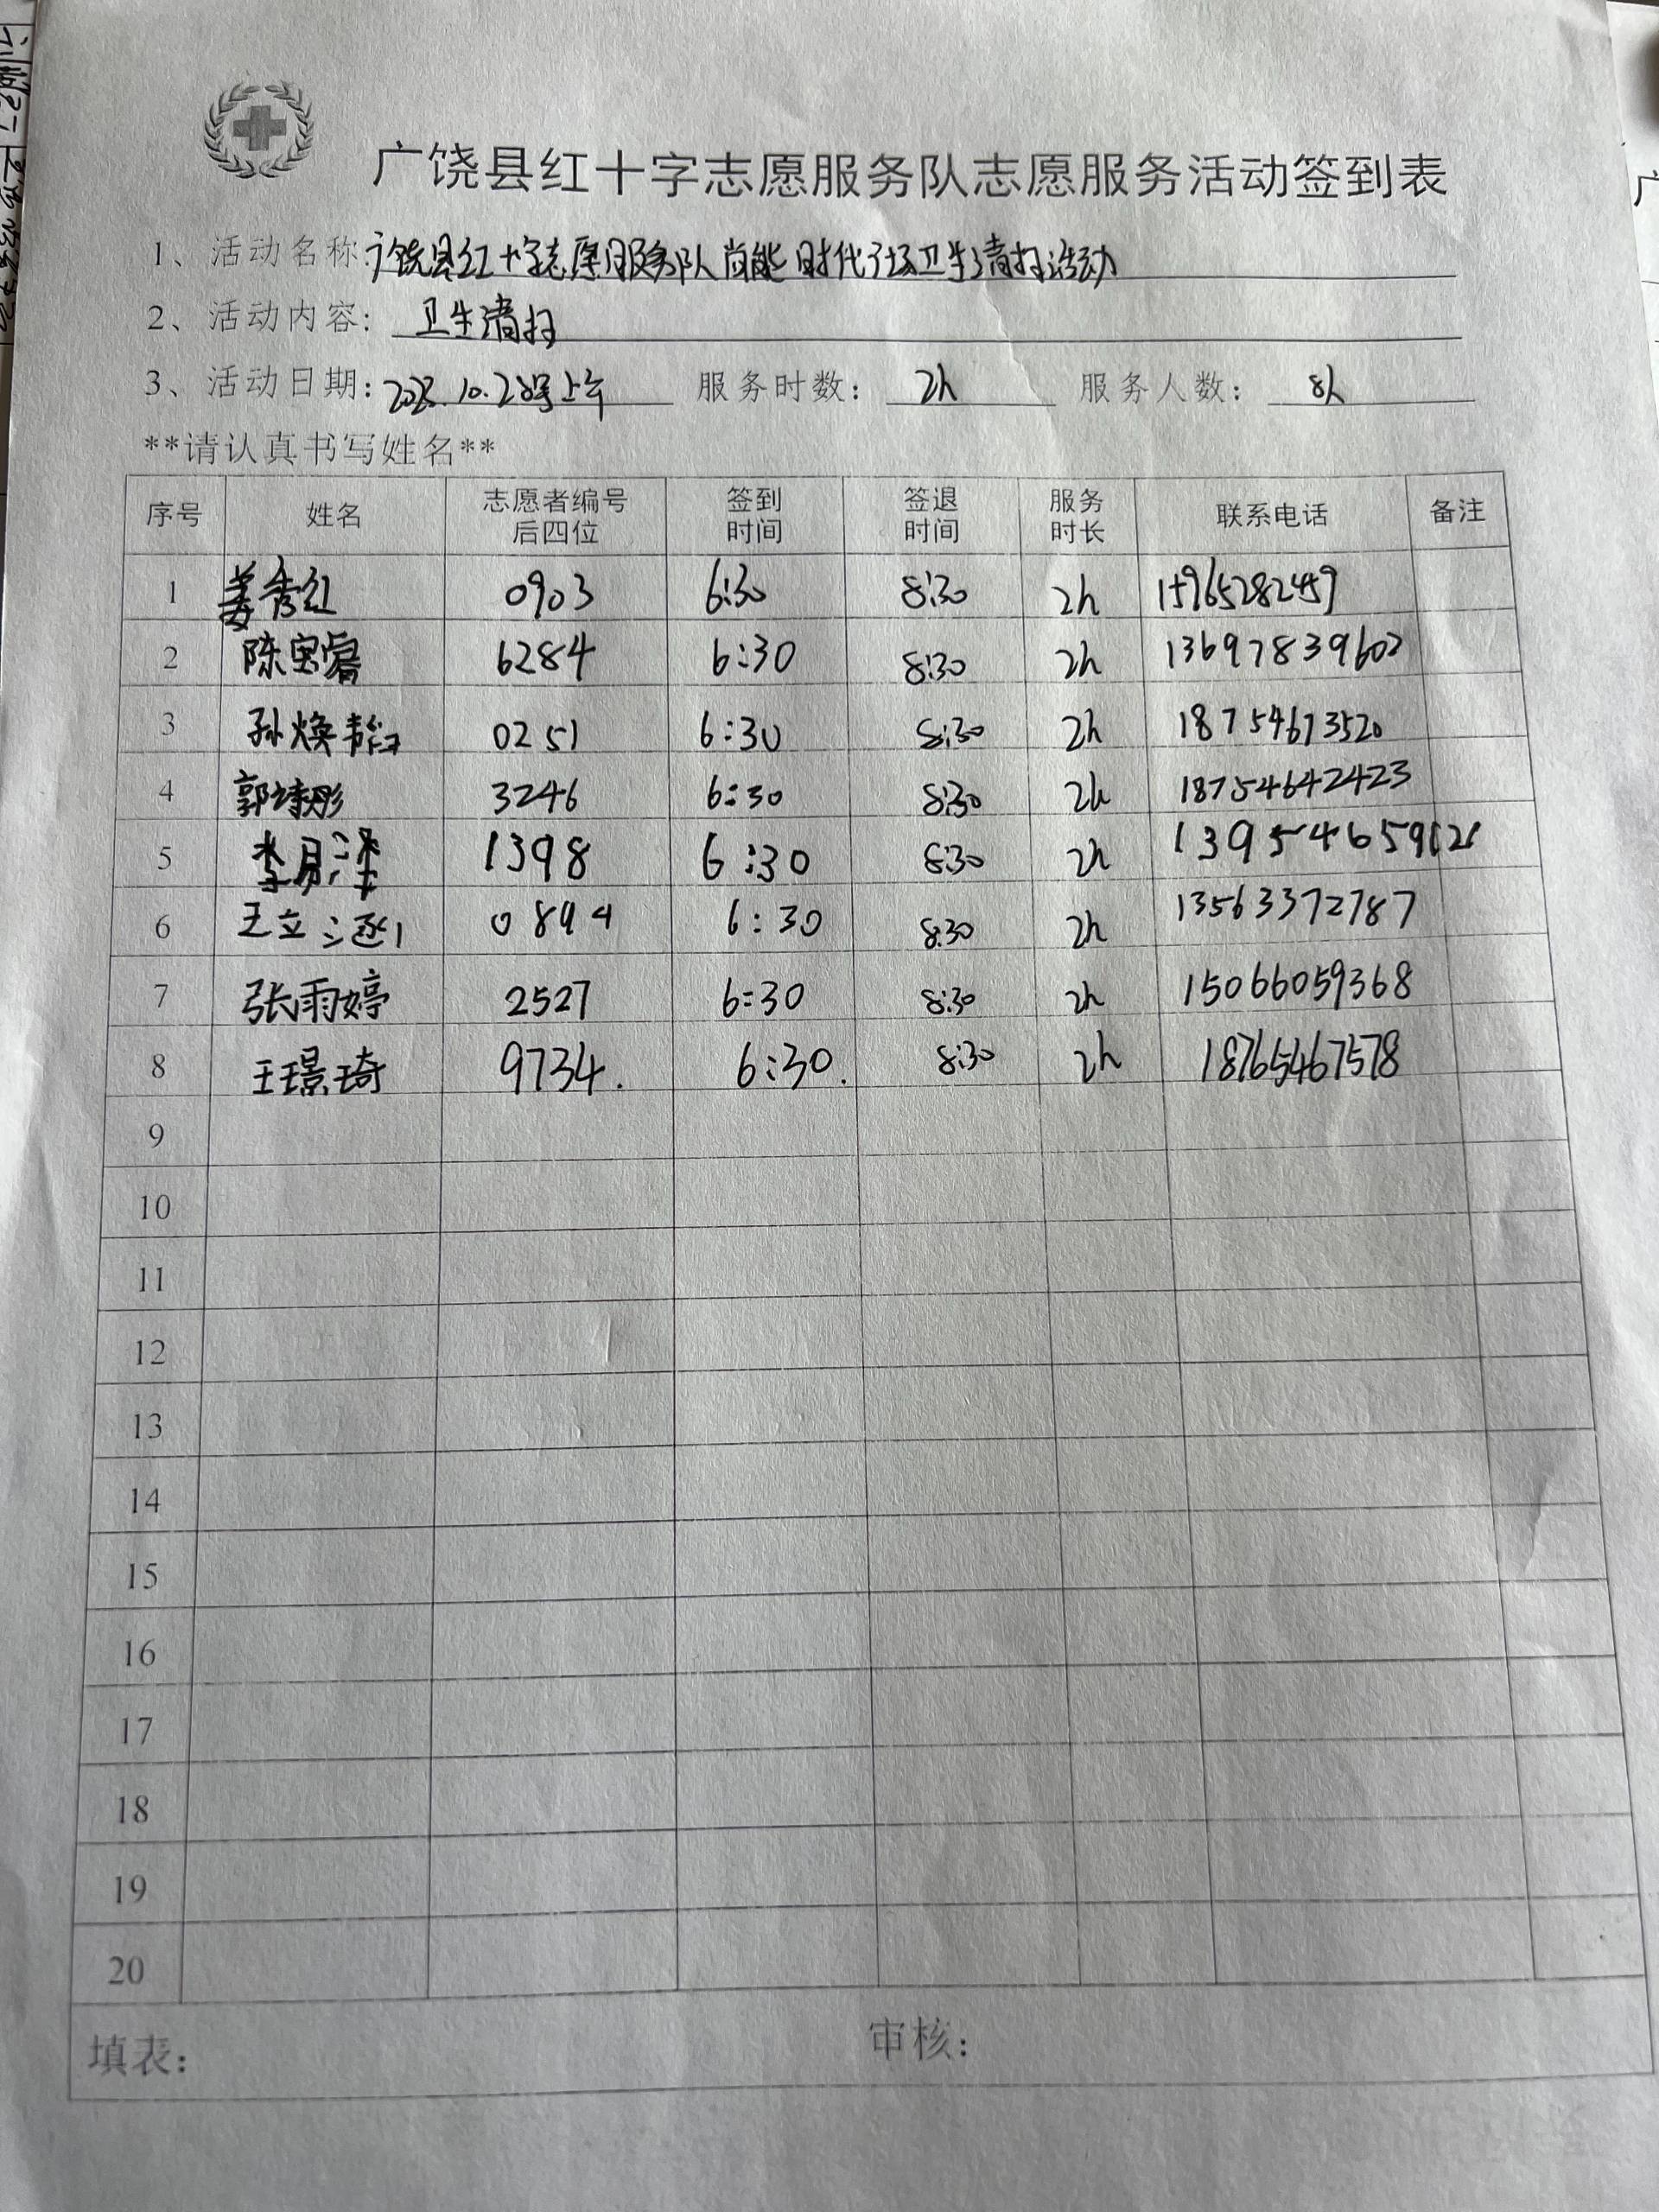 广饶县红十字志愿服务队志愿服务活动签到表
1、活动名称:广饶县红十字志愿服务队尚能时代广场卫生清扫活动
2、活动内容: 卫生清扫
3、活动日期:2023.10.28号上午 服务时数: 2h 服务人数: 8人
**请认真书写姓名**
序号 姓名 志愿者编号后四位 签到时间 签退时间 服务时长 联系电话 备注
1 姜秀红 0903 6:30 8:30 2h 15965282459
2 陈宝睿 6284 6:30 8:30 2h 13697839602
3 孙焕 0251 6:30 8:30 2h 18754673520
4 郭诗彤 3246 6:30 8:30 2h 18754642423
5 李昱泽 1398 6:30 8:30 2h
6 王立 0894 6:30 8:30 2h 13563372787
7 张雨婷 2527 6:30 8:30 2h 15066059368
8 王璟琦 9734. 6:30. 8:30 2h 18765467578
9
10
11
12
13
14
15
16
17
18
19
20
填表: 审核: